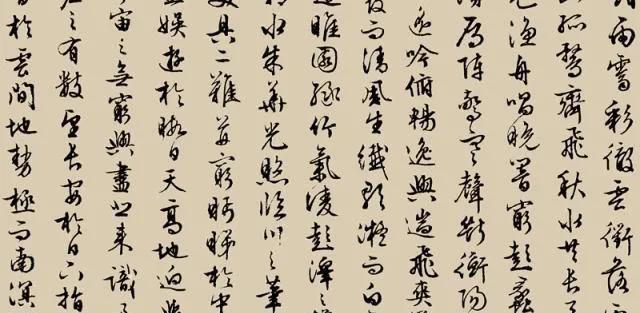 雨霽彩徹雲衢落
孤鶩齊飛秋水共長天
漁舟唱晚響窮彭蠡
陣驚寒聲斷衡陽
遙吟俯暢逸興遄飛爽
發而清風生纖歌凝而白
睢園綠竹氣凌彭澤之
水朱華光照臨川之筆
美具二難並窮睇眄於中
娛遊於暇日天高地迥覺
宙之無窮興盡悲來識
之有數望長安於日下指
於雲間地勢極而南溟